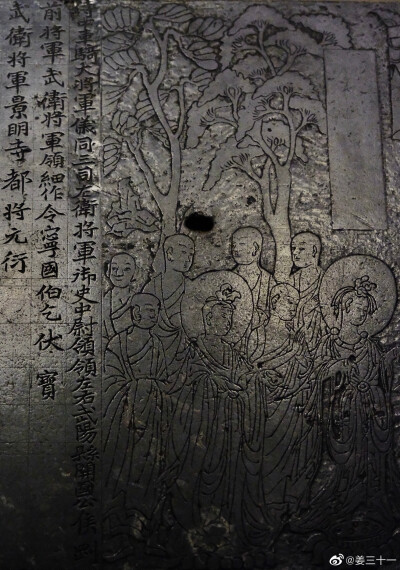 車騎大將軍儀同三司左衛將軍御史中尉領領左右武陽縣開國公侯
前將軍武衛將軍領細作令寧國伯乞伏寶
武衛將軍景明寺都將元衍
@姜三十一